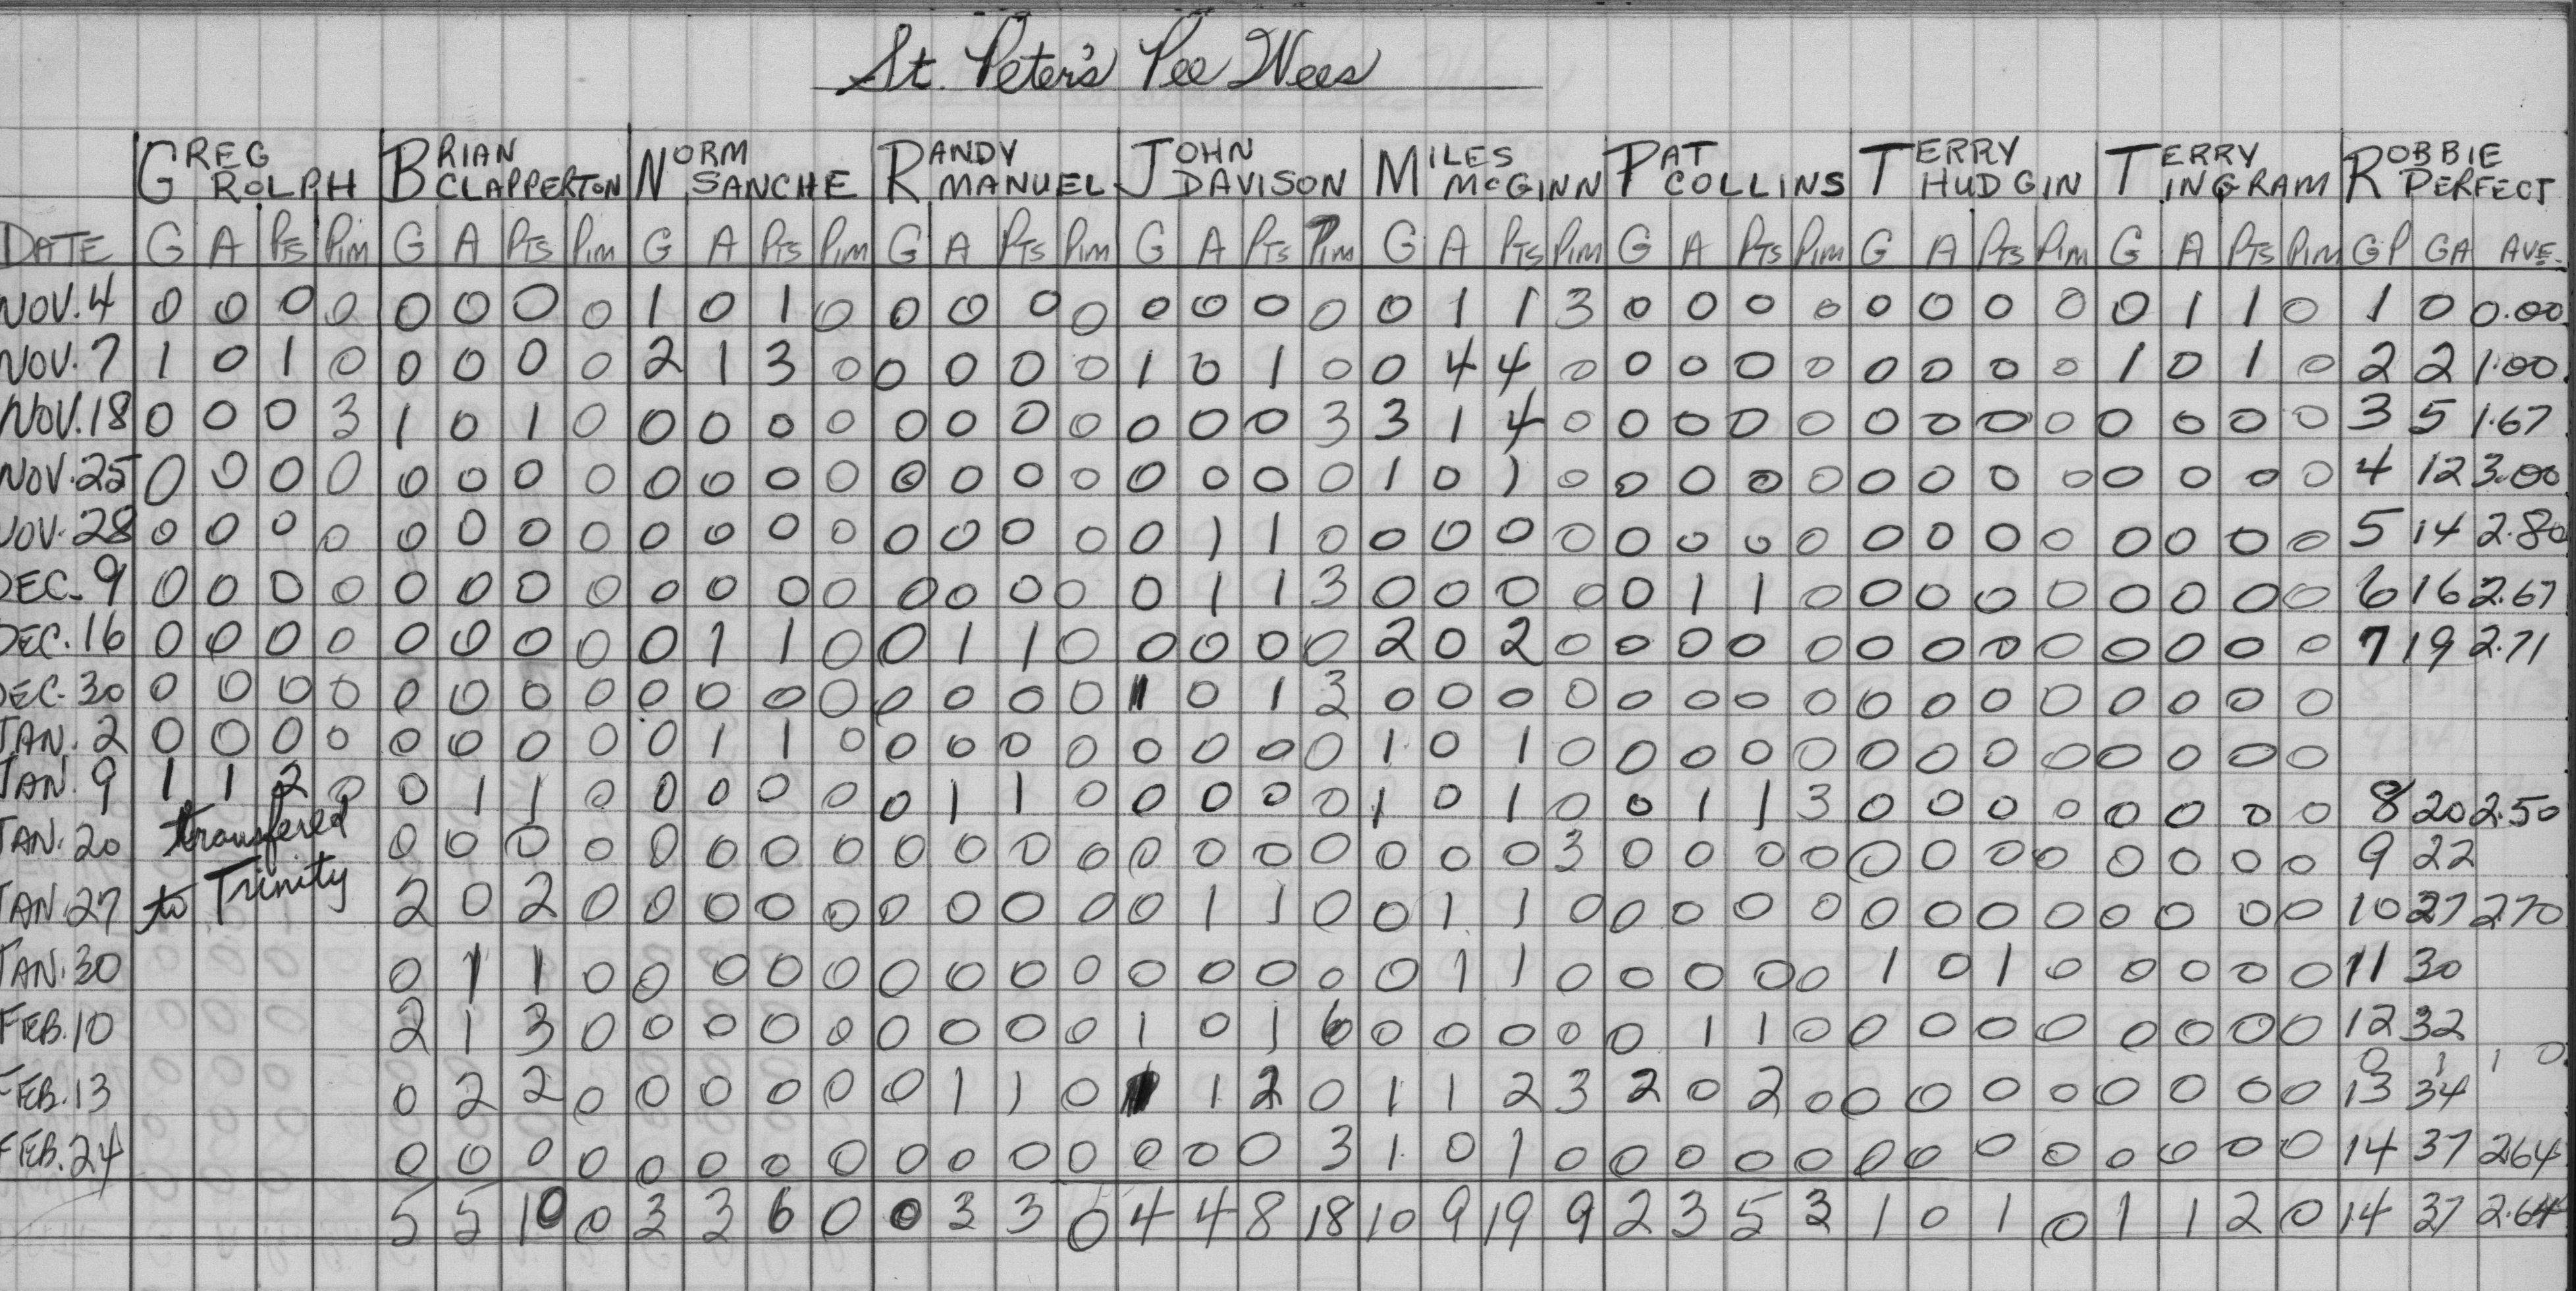 St. Peter's Pee Wees
GREG ROLPH BRIAN CLAPPERTON NORM SANCHE RANDY MANUEL JOHN DAVISON MILES McGINN PAT COLLINS TERRY HUDGIN TERRY INGRAM ROBBIE PERFECT
DATE G A Pts Pim G A Pts Pim G A Pts Pim G A Pts Pim G A Pts Pim G A Pts Pim G A Pts Pim G A Pts Pim G A Pts Pim GP GA AVE.
NOV.4 0 0 0 0 0 0 0 0 1 0 1 0 0 0 0 0 0 0 0 0 0 1 1 3 0 0 0 0 0 0 0 0 0 1 1 0 1 0 0.00
NOV.7 1 0 1 0 0 0 0 0 2 1 3 0 0 0 0 0 1 0 1 0 0 4 4 0 0 0 0 0 0 0 0 0 1 0 1 0 2 2 1.00
NOV.18 0 0 0 3 1 0 1 0 0 0 0 0 0 0 0 0 0 0 0 3 3 1 4 0 0 0 0 0 0 0 0 0 0 0 0 0 3 5 1.67
NOV.25 0 0 0 0 0 0 0 0 0 0 0 0 0 0 0 0 0 0 0 0 1 0 1 0 0 0 0 0 0 0 0 0 0 0 0 0 4 12 3.00
NOV.28 0 0 0 0 0 0 0 0 0 0 0 0 0 0 0 0 0 1 1 0 0 0 0 0 0 0 0 0 0 0 0 0 0 0 0 0 5 14 2.80
DEC.9 0 0 0 0 0 0 0 0 0 0 0 0 0 0 0 0 0 1 1 3 0 0 0 0 0 1 1 0 0 0 0 0 0 0 0 0 6 16 2.67
DEC.16 0 0 0 0 0 0 0 0 0 1 1 0 0 1 1 0 0 0 0 0 2 0 2 0 0 0 0 0 0 0 0 0 0 0 0 0 7 19 2.71
DEC.30 0 0 0 0 0 0 0 0 0 0 0 0 0 0 0 0 1 0 1 3 0 0 0 0 0 0 0 0 0 0 0 0 0 0 0 0
JAN.2 0 0 0 0 0 0 0 0 0 1 1 0 0 0 0 0 0 0 0 0 1 0 1 0 0 0 0 0 0 0 0 0 0 0 0 0
JAN.9 1 1 2 0 0 1 1 0 0 0 0 0 0 1 1 0 0 0 0 0 1 0 1 0 0 1 1 3 0 0 0 0 0 0 0 0 8 20 2.50
JAN.20 transfered 0 0 0 0 0 0 0 0 0 0 0 0 0 0 0 0 0 0 0 3 0 0 0 0 0 0 0 0 0 0 0 0 9 22
JAN.27 to Trinity 2 0 2 0 0 0 0 0 0 0 0 0 0 1 1 0 0 1 1 0 0 0 0 0 0 0 0 0 0 0 0 0 10 27 2.70
JAN.30 0 1 1 0 0 0 0 0 0 0 0 0 0 0 0 0 0 1 1 0 0 0 0 0 1 0 1 0 0 0 0 0 11 30
FEB.10 2 1 3 0 0 0 0 0 0 0 0 0 1 0 1 6 0 0 0 0 0 1 1 0 0 0 0 0 0 0 0 0 12 32
0 1 1 0
FEB.13 0 2 2 0 0 0 0 0 0 1 1 0 1 1 2 0 1 1 2 3 2 0 2 0 0 0 0 0 0 0 0 0 13 34
FEB.24 0 0 0 0 0 0 0 0 0 0 0 0 0 0 0 3 1 0 1 0 0 0 0 0 0 0 0 0 0 0 0 0 14 37 2.64
5 5 10 0 3 3 6 0 0 3 3 0 4 4 8 18 10 9 19 9 2 3 5 3 1 0 1 0 1 1 2 0 14 37 2.64